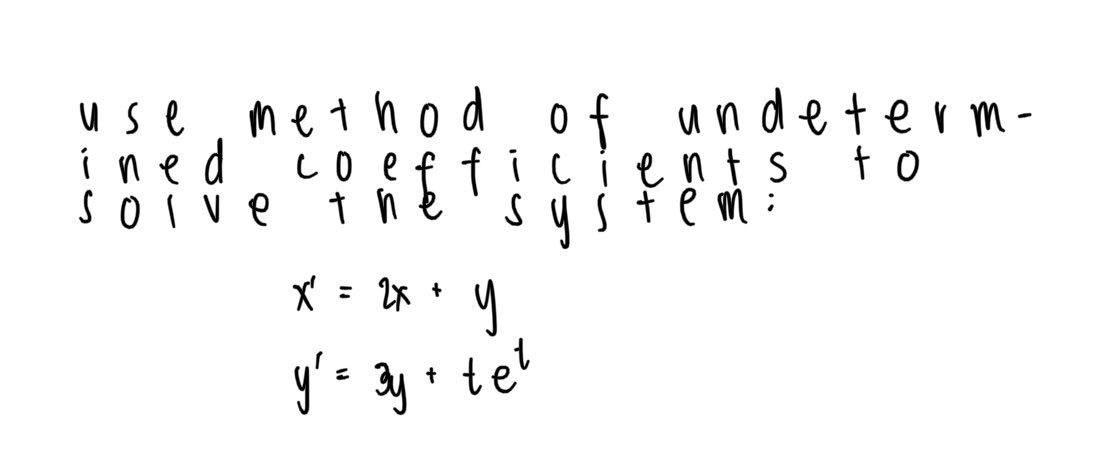 use method of undeterm-
ined coefficients to
solve the system:
x' = 2x + y
y' = 3y + te^t